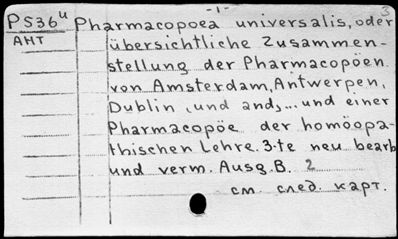 -1-
3
PS36u Pharmacopoea universalis, oder
АНТ übersichtliche Zusammen-
stellung der Pharmacopöen
von Amsterdam, Antwerpen,
Dublin, und and,... und einer
Pharmacopöe der homöopa-
thischen Lehre. 3-te neu bearb
und verm. Ausg. B. 2
см. след. карт.